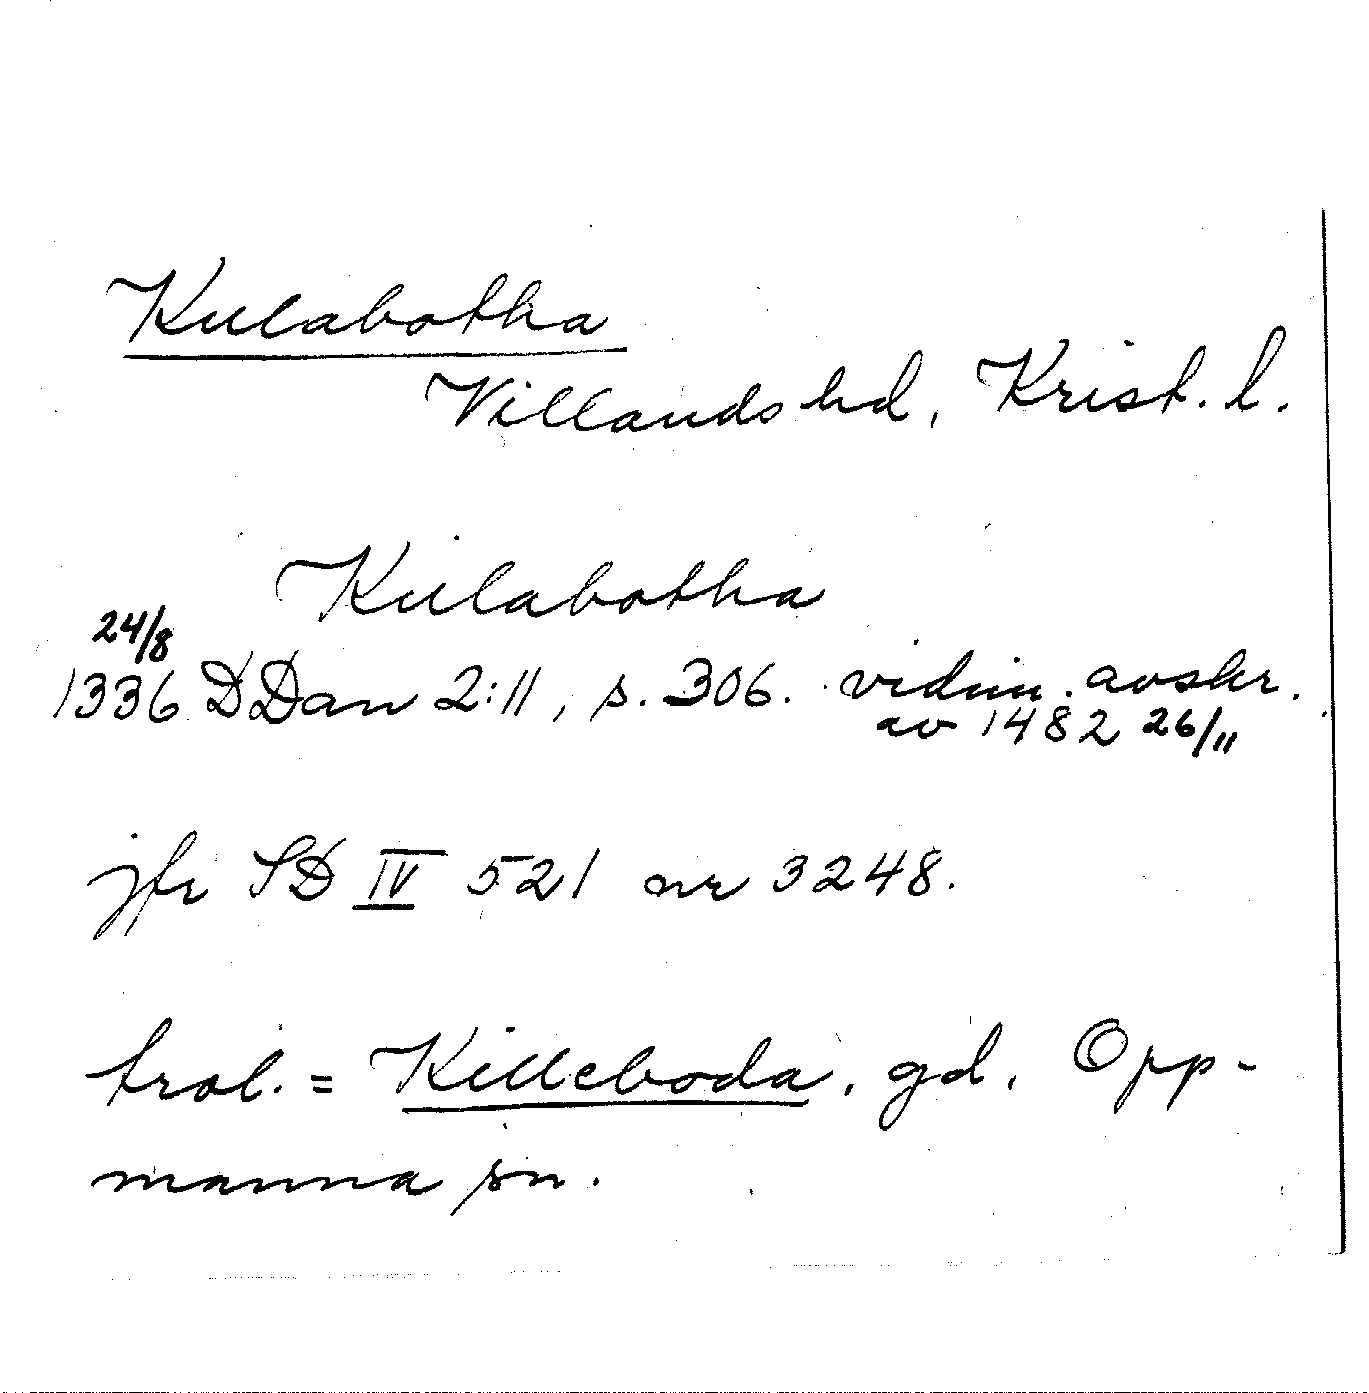 Kulabotha
Villands hd, Krist. l.
Kulabotha
24/8
1336 DDan 2:11, s. 306. vidim. avskr.
av 1482 26/11
jfr SD IV 521 nr 3248.
trol. = Killeboda, gd, Opp-
manna sn.